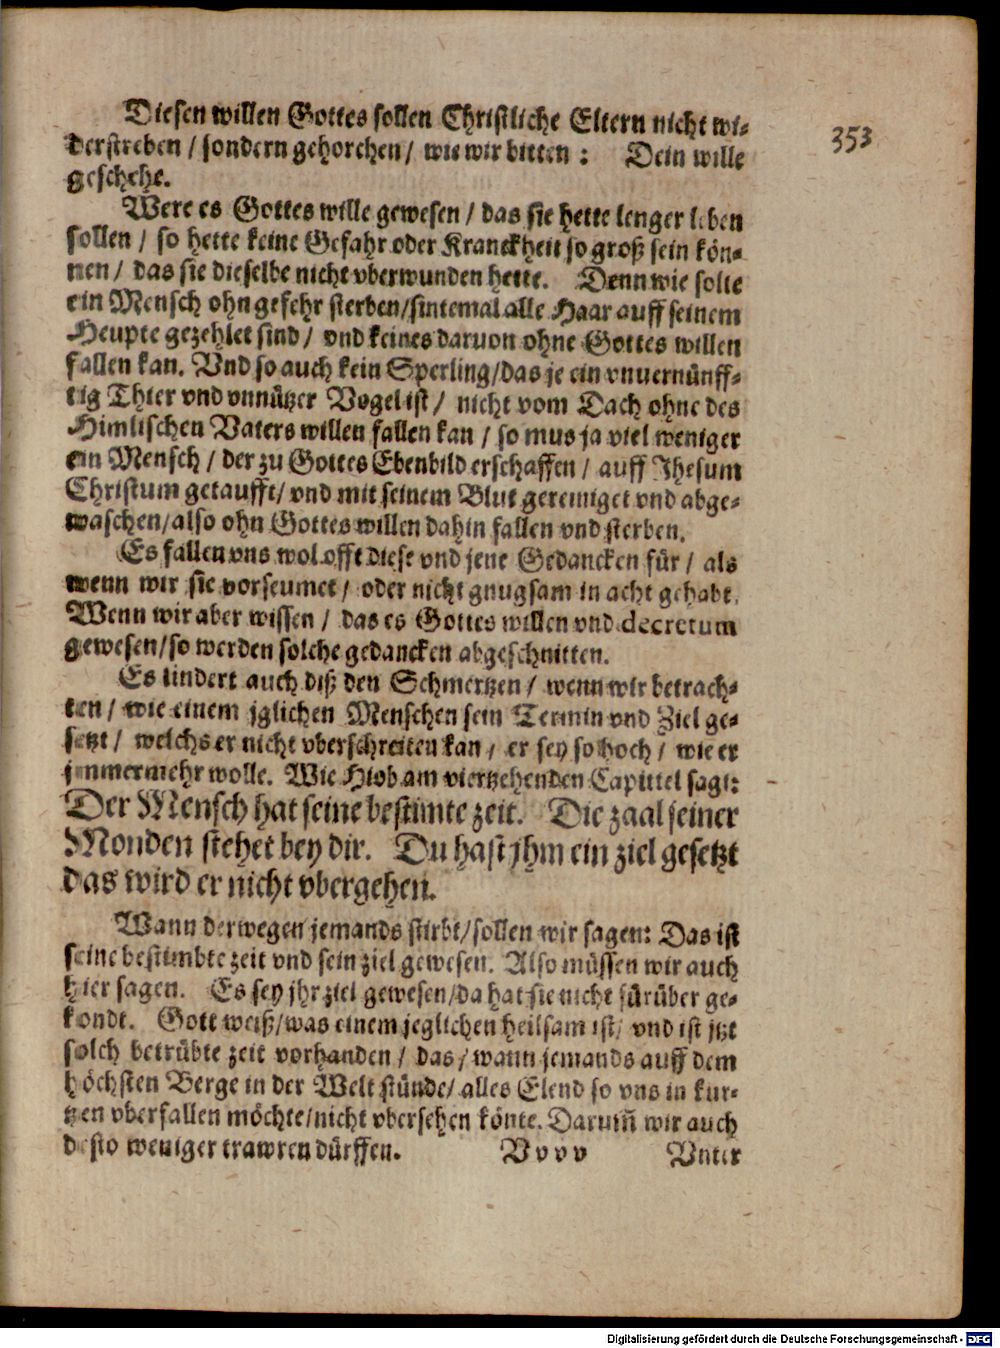 Diesen willen Gottes sollen Christliche Eltern nicht wi-
derstreben / sondern gehorchen / wie wir bitten : Dein wille
geschehe.
353
Were es Gottes wille gewesen / das sie hette lenger leben
sollen / so hette keine Gefahr oder Kranckheit so groß sein kön-
nen / das sie dieselbe nicht vberwunden hette. Denn wie solte
ein Mensch ohn gefehr sterben/sintemal alle Haar auff seinem
Heupte gezehlet sind / vnd keines daruon ohne Gottes willen
fallen kan. Vnd so auch kein Sperling/das je ein vnuernünff-
tig Thier vnd vnnützer Vogel ist / nicht vom Dach ohne des
Himlischen Vaters willen fallen kan / so mus ja viel weniger
ein Mensch / der zu Gottes Ebenbild erschaffen / auff Jhesum
Christum getaufft/ vnd mit seinem Blut gereiniget vnd abge-
waschen/also ohn Gottes willen dahin fallen vnd sterben.
Es fallen vns wol offt diese vnd jene Gedancken für / als
wenn wir sie vorseumet / oder nicht gnugsam in acht gehabt.
Wenn wir aber wissen / das es Gottes willen vnd decretum
gewesen/so werden solche gedancken abgeschnitten.
Es lindert auch diß den Schmertzen / wenn wir betrach-
ten / wie einem jglichen Menschen sein Termin vnd Ziel ge-
setzt / welchs er nicht vberschreiten kan / er sey so hoch / wie er
jmmermehr wolle. Wie Hiob am viertzehenden Capittel sagt:
Der Mensch hat seine bestimte zeit. Die zaal seiner
Monden stehet bey dir. Du hast jhm ein ziel gesetzt
das wird er nicht vbergehen.
Wann derwegen jemands stirbt/sollen wir sagen: Das ist
seine bestimbte zeit vnd sein ziel gewesen. Also müssen wir auch
hier sagen. Es sey jhr ziel gewesen/da hat sie nicht fürüber ge-
kondt. Gott weiß/was einem jeglichen heilsam ist/ vnd ist jtzt
solch betrübte zeit vorhanden / das / wann jemands auff dem
höchsten Berge in der Welt stünde/ alles Elend so vns in kur-
tzen vberfallen möchte/nicht vbersehen könte. Darum̃ wir auch
desto weniger trawren dürffen.
Vvvv
Vnter
Digitalisierung gefördert durch die Deutsche Forschungsgemeinschaft - DFG